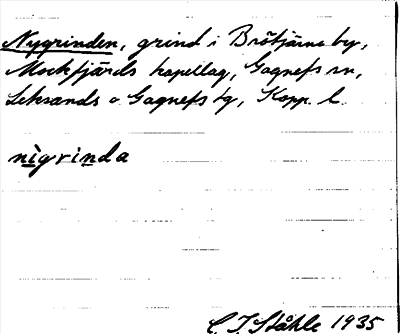 Nygrinden, grind i Brötjärna by,
Mockfjärds kapellag, Gagnefs sn,
Leksands o Gagnefs tg, Kopp. l.
nìgrinda
C. I. Ståhle 1935